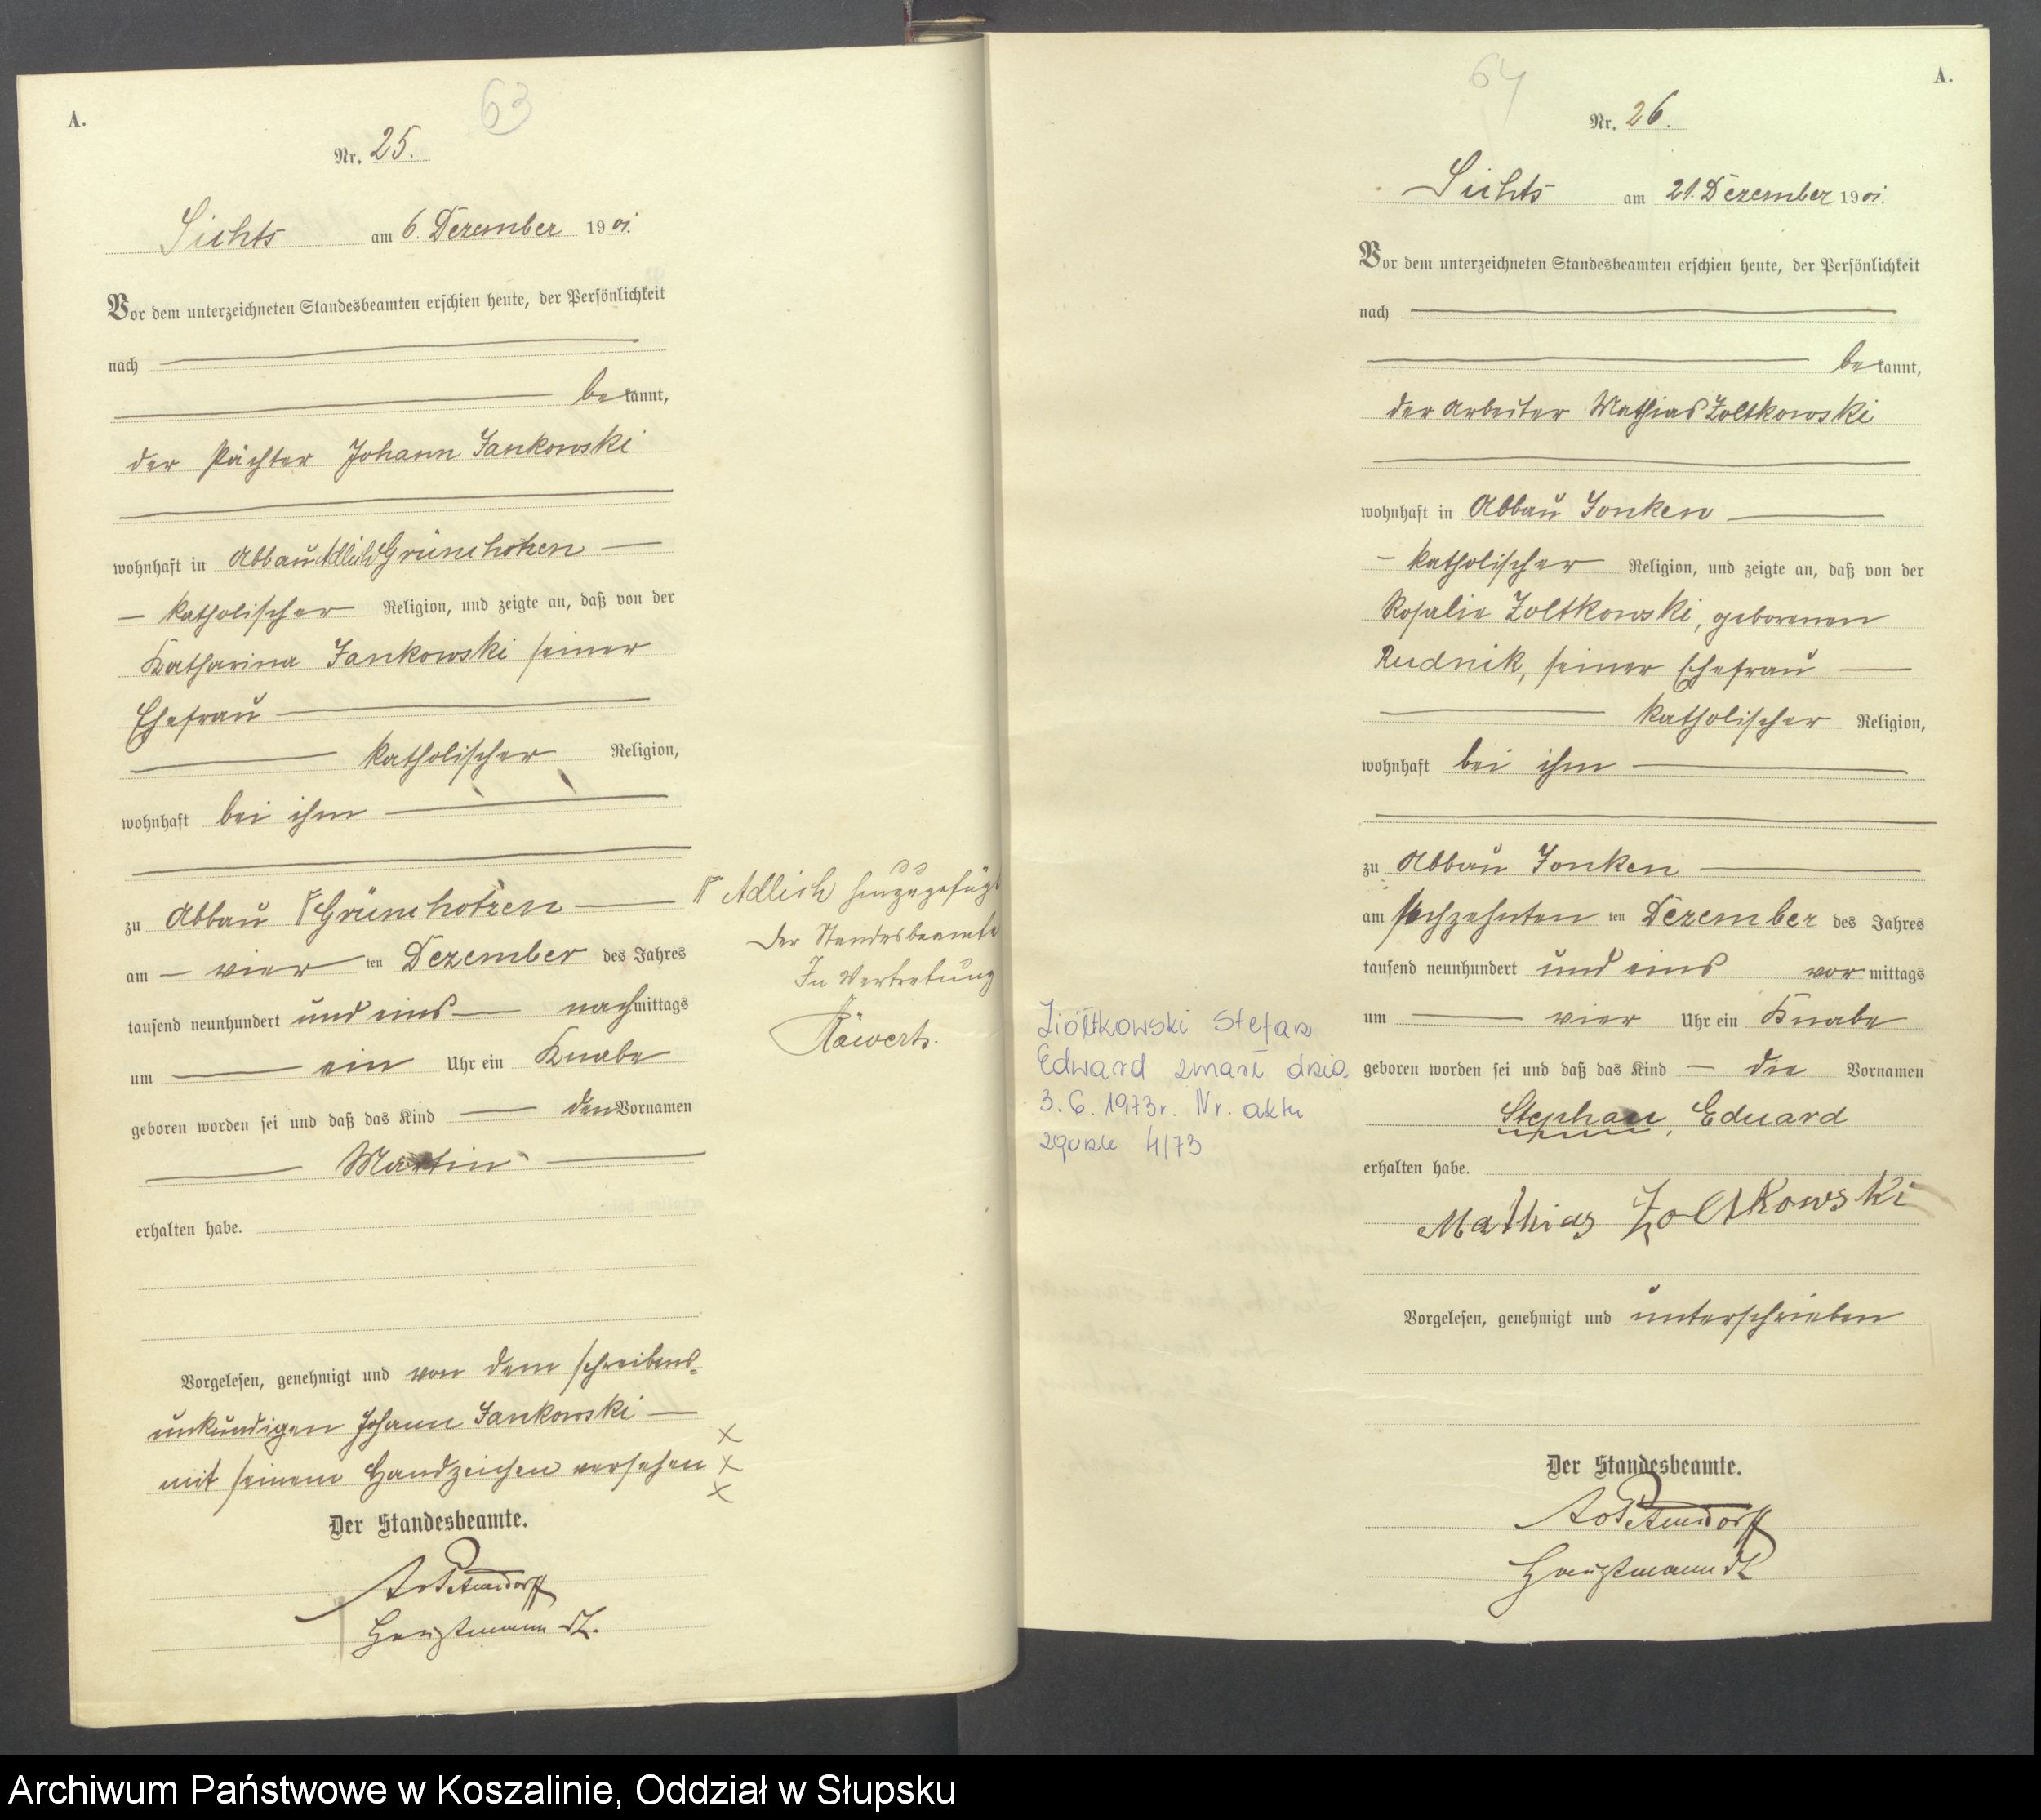 A.
63
Nr. 25.
Sichts am 6. Dezember 1901.
Vor dem unterzeichneten Standesbeamten erschien heute, der Persönlichkeit
nach
bekannt,
der Pächter Johann Jankowski
wohnhaft in Abbau Adlich Grünchotzen
katholischer Religion, und zeigte an, daß von der
Katharina Jankowski seiner
Ehefrau
katholischer Religion,
wohnhaft bei ihm
zu Abbau Grünchotzen
am vier ten Dezember des Jahres
tausend neunhundert und eins nachmittags
um ein Uhr ein Knabe
geboren worden sei und daß das Kind den Vornamen
Martin
erhalten habe.
Vorgelesen, genehmigt und von dem schreibens-
unkundigen Johann Jankowski
mit seinem Handzeichen versehen
x
x
x
Der Standesbeamte.
Adlich hinzugefügt
Der Standesbeamte
In Vertretung
A.
64
Nr. 26.
Sichts am 21. Dezember 1901.
Vor dem unterzeichneten Standesbeamten erschien heute, der Persönlichkeit
nach
bekannt,
der Arbeiter Mathias Zoltkowski
wohnhaft in Abbau Jonken
katholischer Religion, und zeigte an, daß von der
Rosalie Zoltkowski, geborenen
Rudnik, seiner Ehefrau
katholischer Religion,
wohnhaft bei ihm
zu Abbau Jonken
am sechzehnten ten Dezember des Jahres
tausend neunhundert und eins vormittags
um vier Uhr ein Knabe
geboren worden sei und daß das Kind die Vornamen
Stephan, Eduard
erhalten habe.
Mathias Zoltkowski
Vorgelesen, genehmigt und unterschrieben
Der Standesbeamte.
Ziółtkowski Stefan
Edward zmarł dnia
3.6.1973r. Nr. aktu
zgonu 4/73
Archiwum Państwowe w Koszalinie, Oddział w Słupsku